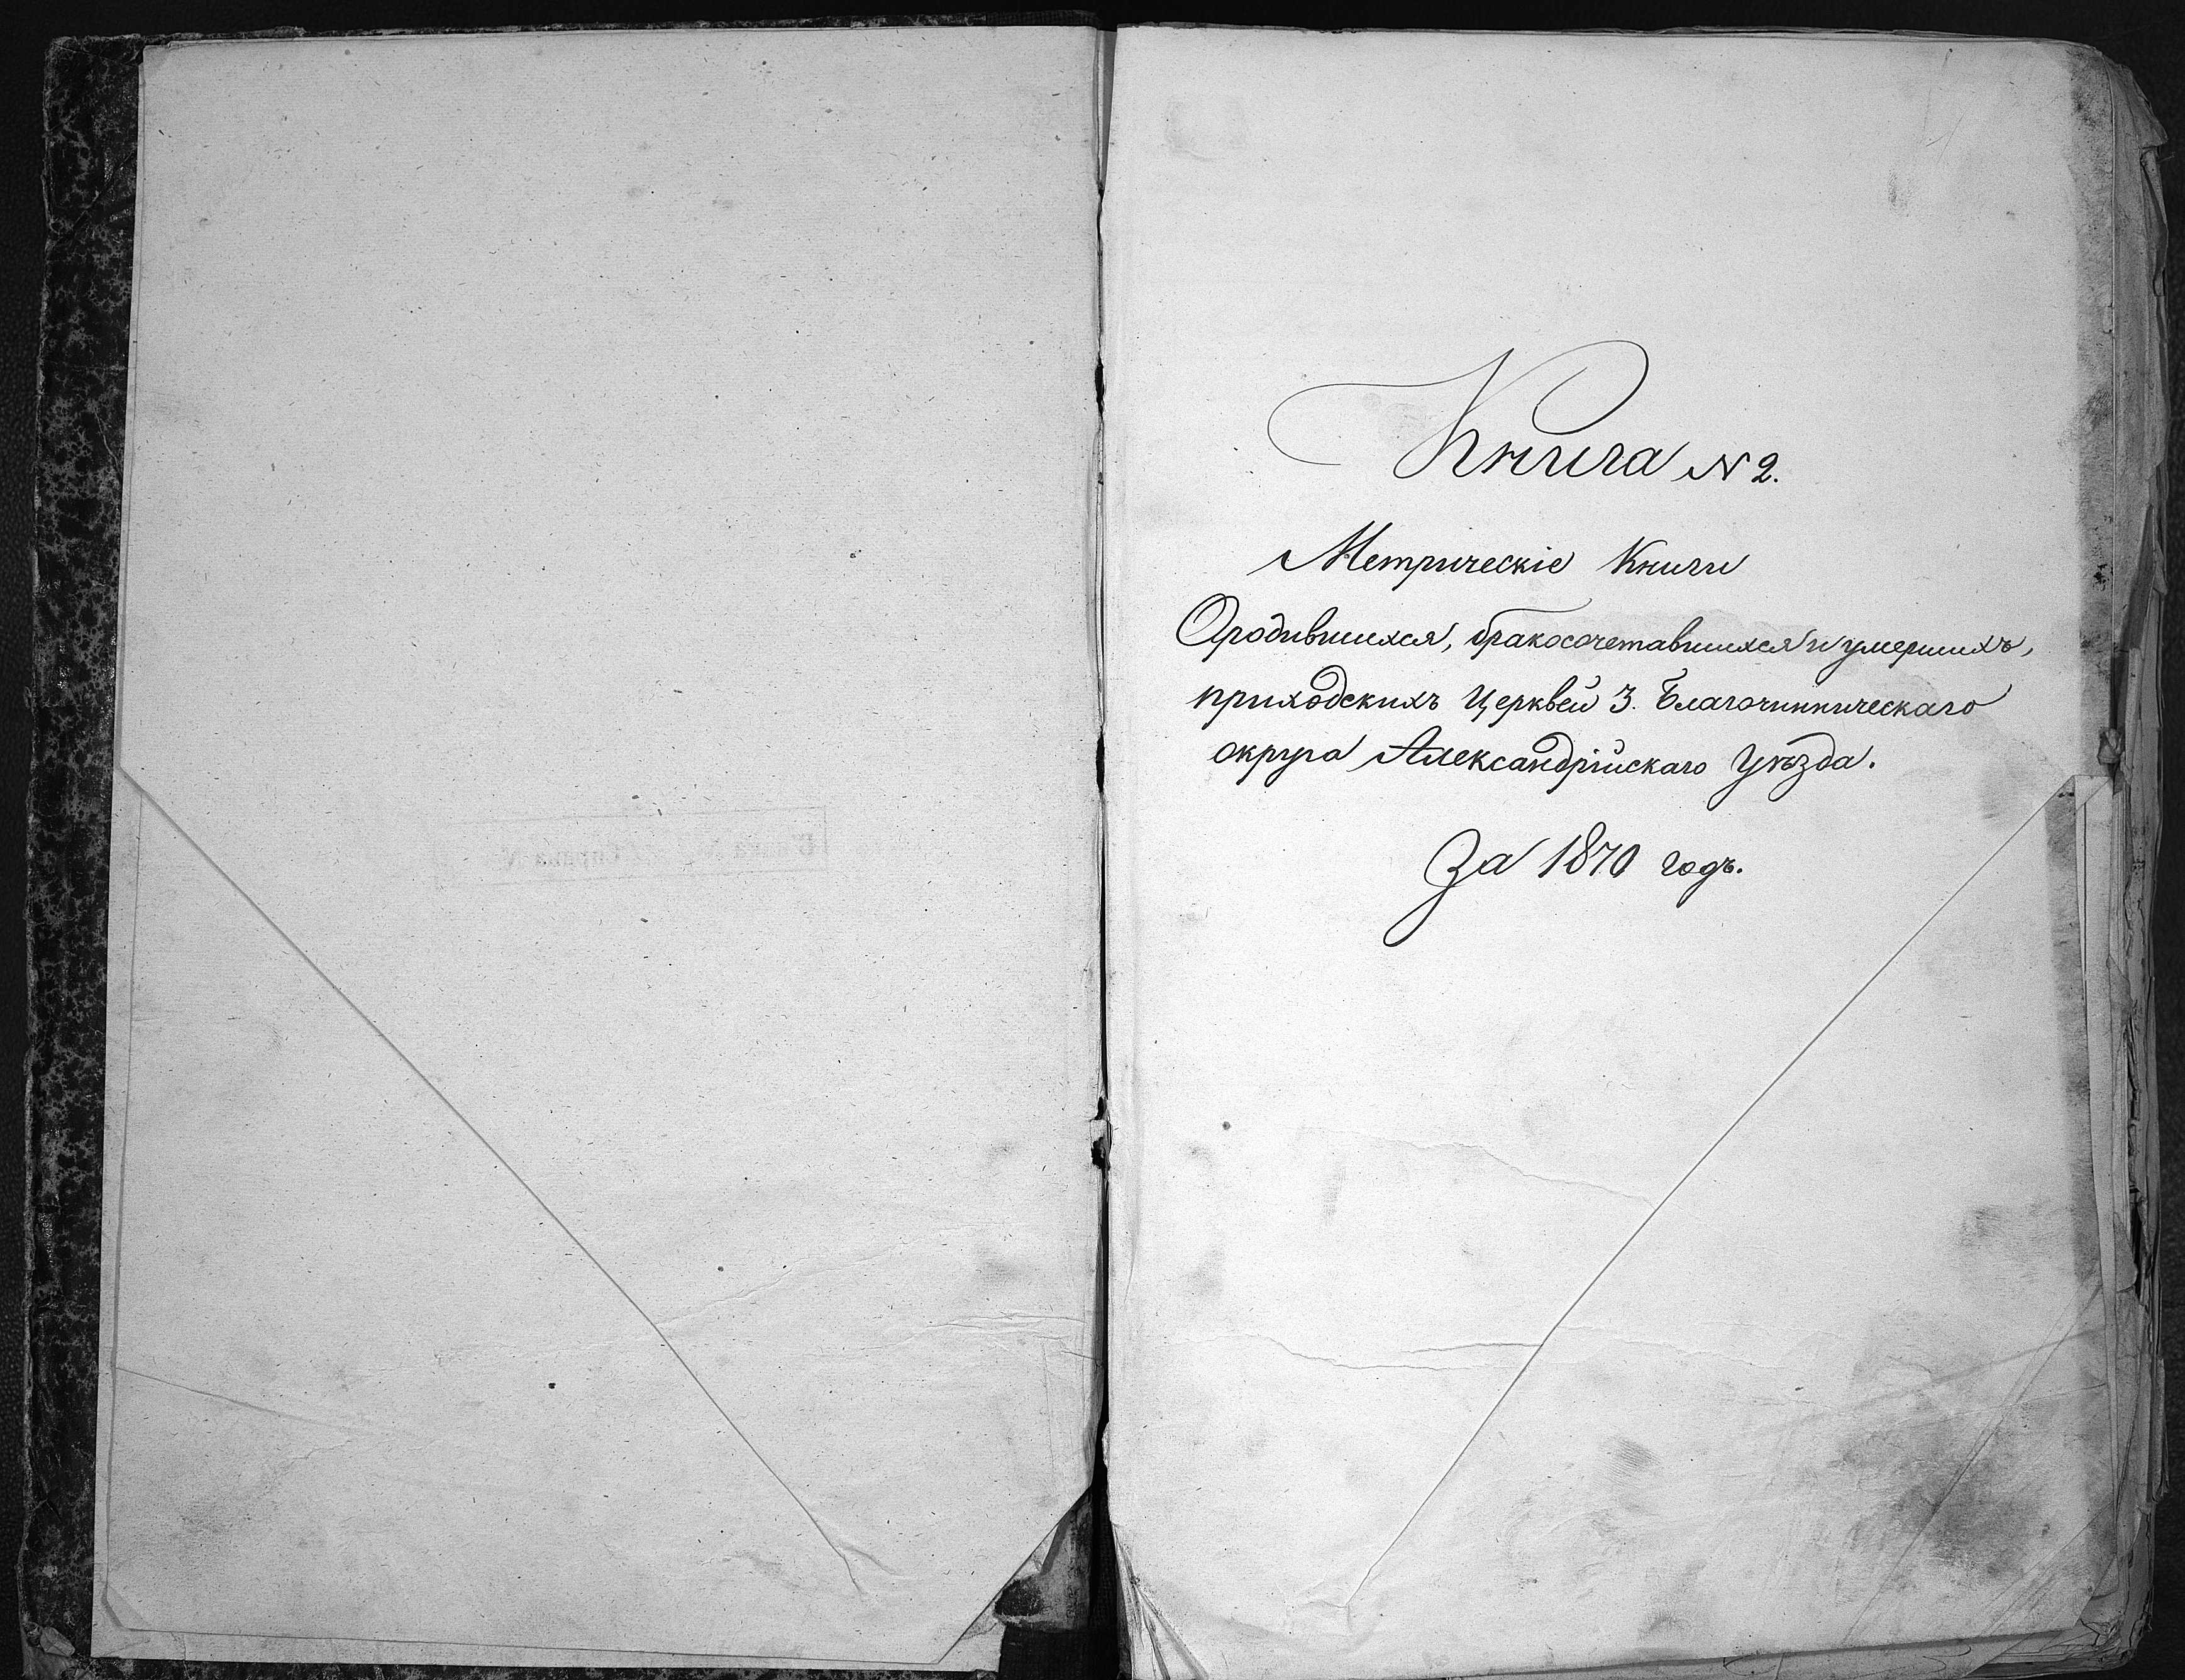 Книга № 2.
Метрическіе Книги
О родившихся, бракосочетавшихся и умершихъ,
приходскихъ Церквей 3. Благочинническаго
округа Александрійскаго Уѣзда.
За 1870 годъ.